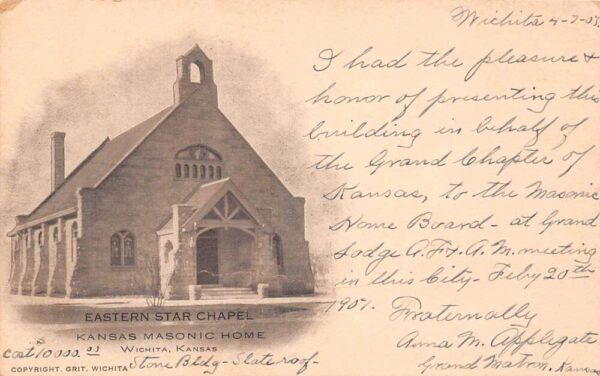 Wichita 4-7-07.
I had the pleasure &
honor of presenting this
building in behalf of
the Grand Chapter of
Kansas, to the Masonic
Home Board - at Grand
Lodge A.F. & A.M. meeting
in this City - Feby 20th
1907. Fraternally
Anna M. Applegate
Grand Matron, Kansas
EASTERN STAR CHAPEL
KANSAS MASONIC HOME
WICHITA, KANSAS
cost 10000.00
Stone Bldg - Slate roof -
COPYRIGHT. GRIT. WICHITA